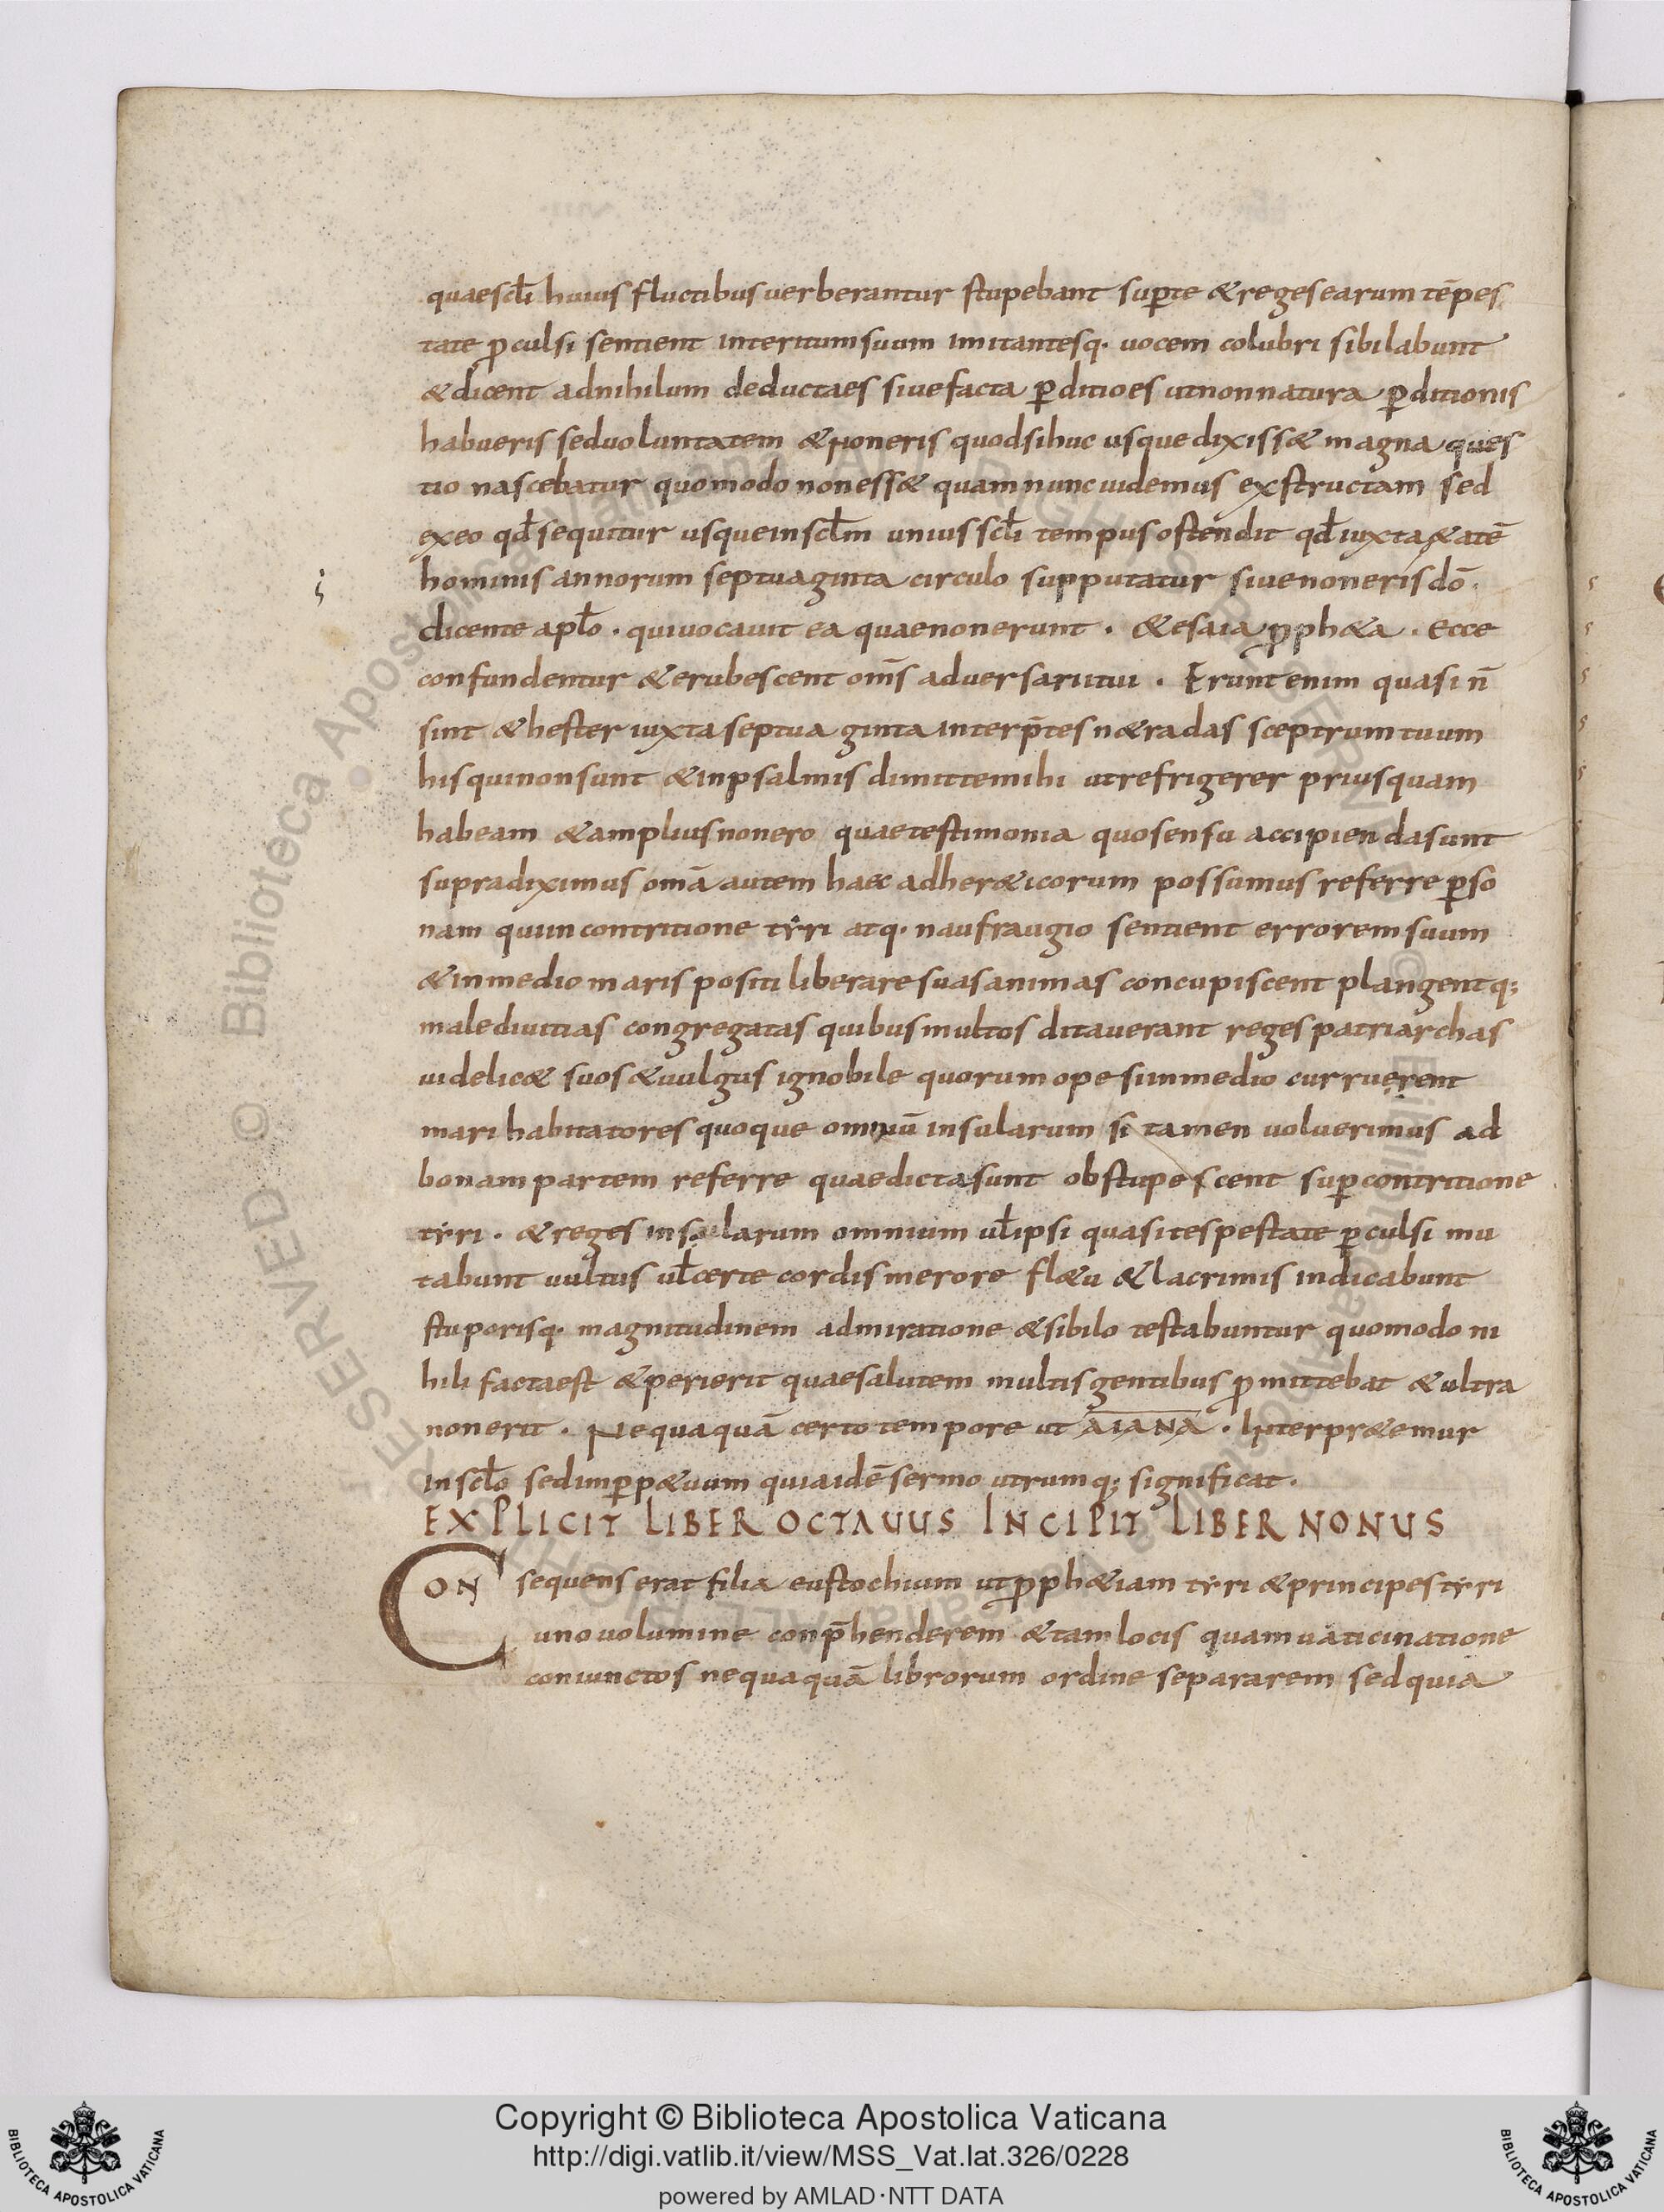 quae scl̄i huius fluctibus uerberantur stupebant sup̄ te & reges earum tēpes
tate p̄culsi sentient interitum suum imitantesq· uocem colubri sibilabunt
& dicent adnihilum deducta es siue facta p̄ditio es ut non natura p̄ditionis
habueris sed uoluntatem & non eris quod si huc usque dixiss& magna ques
tio nascebatur quomodo non ess& quam nunc uidemus exstructam sed
ex eo qd̄ sequitur usque in scl̄m unius scl̄i tempus ostendit qd̄ iuxta &atē
hominis annorum septuaginta circulo supputatur siue non eris dō·
dicente apl̄o · qui uocauit ea quae non erunt · & esaia p̄ph&a · Ecce
confundentur & erubescent om̄s aduersarii tui · Erunt enim quasi n̄
sint & hester iuxta septuaginta interp̄tes n& radas sceptrum tuum
his qui non sunt & in psalmis dimitte mihi ut refrigerer priusquam
habeam & amplius non ero quae testimonia quo sensu accipienda sunt
supra diximus omā autem haec ad her&icorum possumus referre p̄so
nam qui in contritione tyri atq· naufraugio sentient errorem suum
& in medio maris positi liberare suas animas concupiscent plangentq;
male diuitias congregatas quibus multos ditauerant reges patriarchas
uidelic& suos & uulgus ignobile quorum opes in medio corruerent
mari habitatores quoque omniū insularum si tamen uoluerimus ad
bonam partem referre quae dicta sunt obstupescent sup̄ contritione
tyri · & reges insularum omnium ul̄ ipsi quasi tespestate p̄culsi mu
tabunt uultus ul̄ certe cordis merore fl&u & lacrimis indicabunt
stuporisq· magnitudinem admiratione & sibilo testabuntur quomodo ni
hili facta est & perierit quae salutem multis gentibus p̄mittebat & ultra
non erit · Nequaquā certo tempore ut AIANA · Interpr&emur
in scl̄o sed in p̄p&uum quia idē sermo utrumq; significat ·
EXPLICIT LIBER OCTAUUS INCIPIT LIBER NONUS
CON sequens erat filia eustochium ut p̄ph&iam tyri & principes tyri
uno uolumine conp̄henderem & tam locis quam uaticinatione
coniunctos nequaquā librorum ordine separarem sed quia
Copyright © Biblioteca Apostolica Vaticana
http://digi.vatlib.it/view/MSS_Vat.lat.326/0228
powered by AMLAD·NTT DATA
BIBLIOTECA APOSTOLICA VATICANA
BIBLIOTECA APOSTOLICA VATICANA